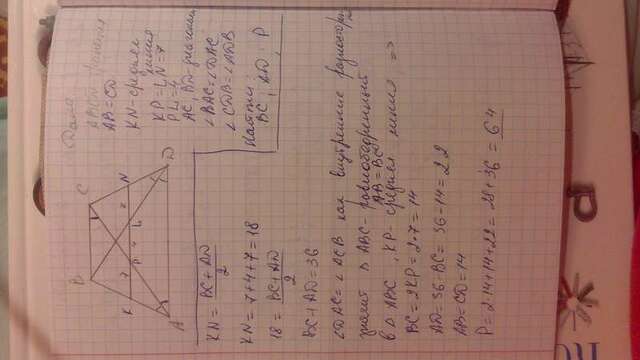 Дано:
ABCD - трапеция
AB=CD
KN-средняя линия
KP=LN=7
PL=4
AC, BD-диагонали
∠BAC=∠DAC
∠CDB=∠ADB
Найти:
BC; AD; P
B C
K 7 P 4 L 7 N
A D
KN = BC+AD / 2
KN=7+4+7=18
18 = BC+AD / 2
BC+AD=36
∠DAC=∠ACB как внутренние
значит Δ ABC-равнобедренный
AB=BC
в Δ ABC, KP-средняя линия =>
BC=2KP=2·7=14
AD=36-BC=36-14=22
AB=CD=14
P=2·14+14+22=28+36=64